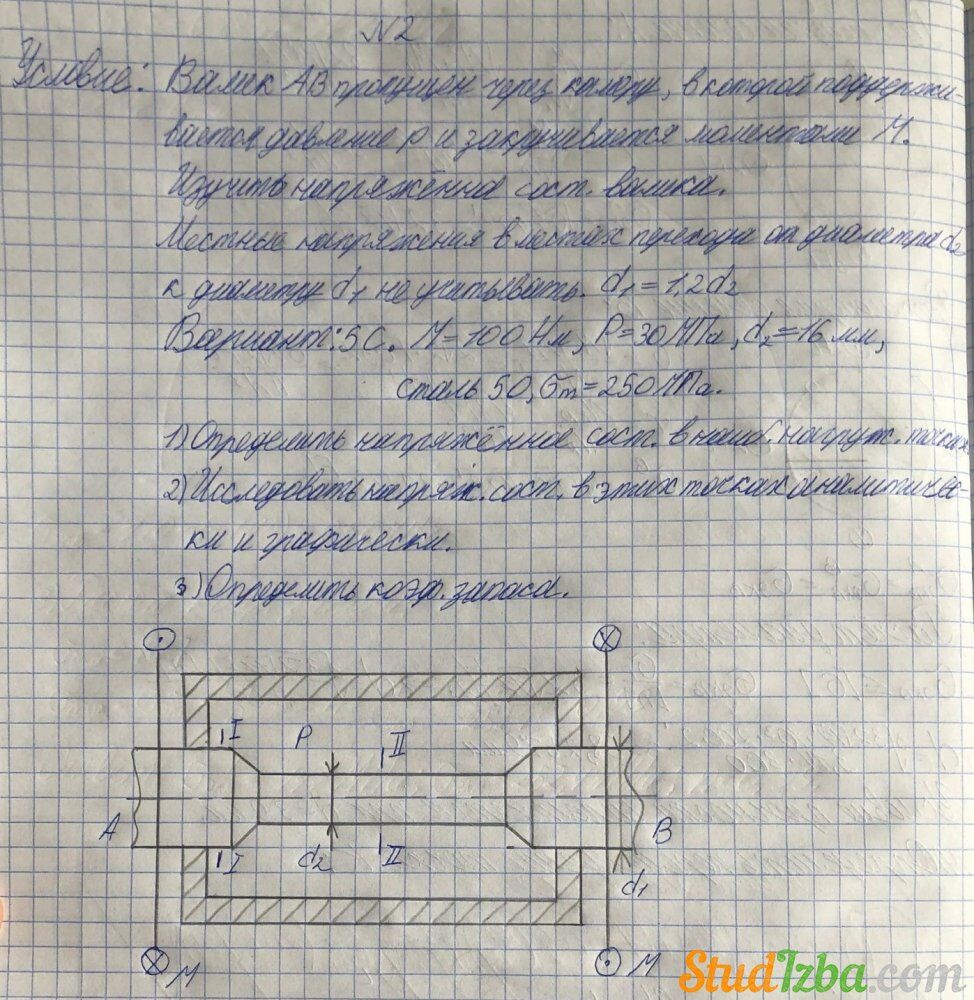 N2
Условие: Валик AB пропущен через камеру, в которой поддержи-
вается давление p и закручивается моментами M.
Изучить напряжённо сост. валика.
Местные напряжения в местах перехода от диаметра d2
к диаметру d1 не учитывать. d1 = 1,2d2
Вариант: 5C. M=100 Нм, P=30 МПа, d2=16 мм,
сталь 50, σт=250 МПа.
1) Определить напряжённое сост. в наиб. нагруж. точках
2) Исследовать напряж. сост. в этих точках аналитичес-
ки и графически.
3) Определить коэф. запаса.
I P II
A B
I d2 II
d1
M M
StudIzba.com